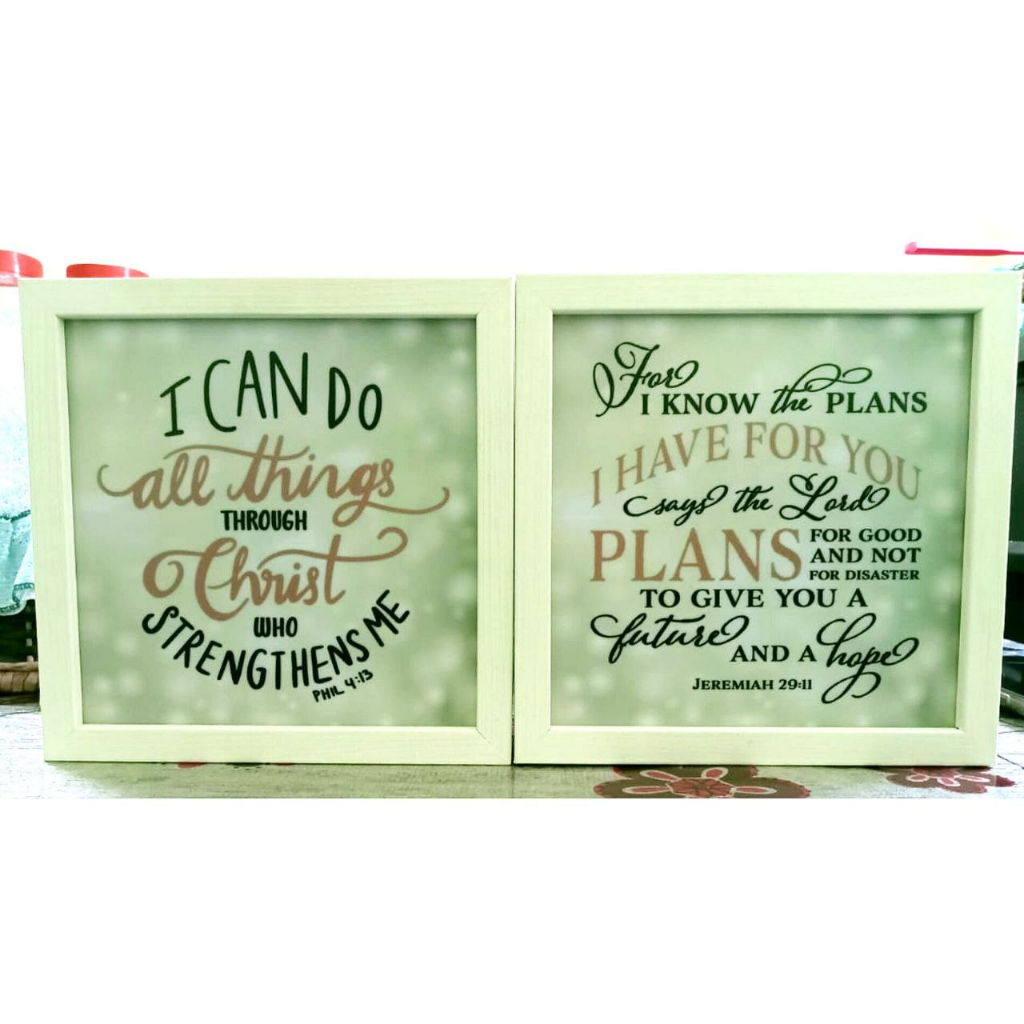 I CAN DO
all things
THROUGH
Christ
WHO
STRENGTHENS ME
PHIL 4:13
For
I KNOW the PLANS
I HAVE FOR YOU
says the Lord
PLANS FOR GOOD
AND NOT
FOR DISASTER
TO GIVE YOU A
future
AND A hope
JEREMIAH 29:11